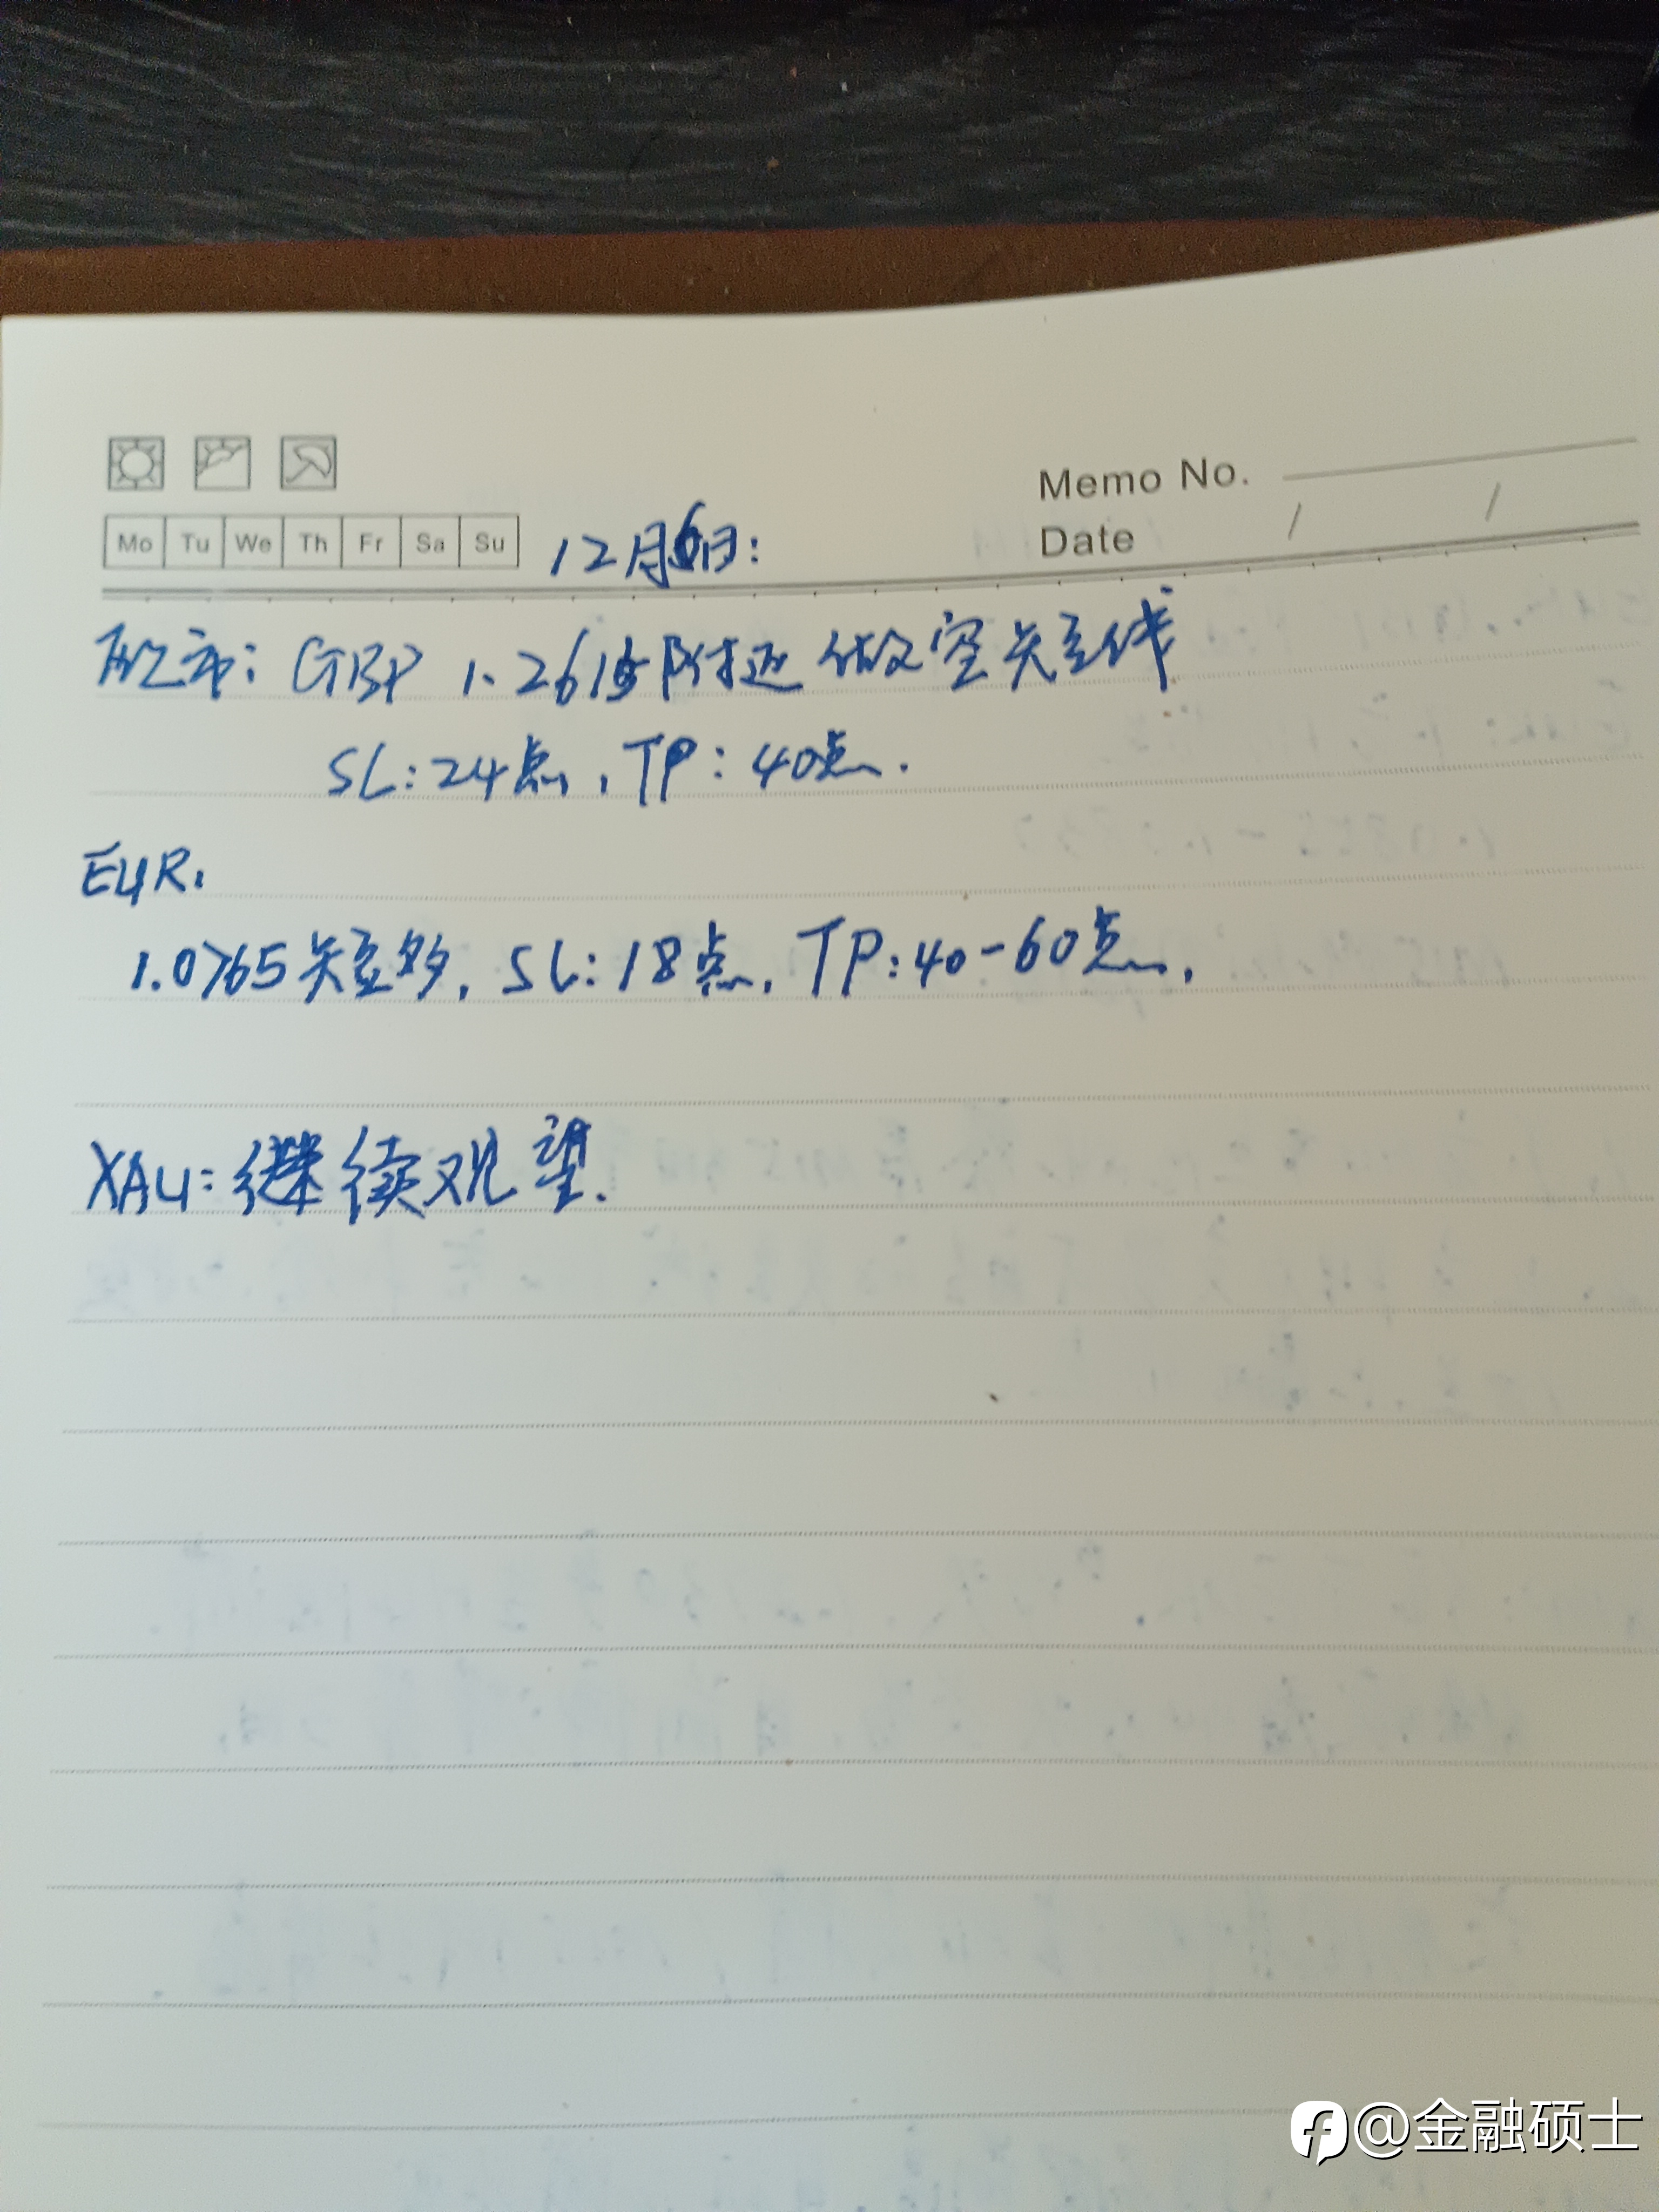 Memo No.
Mo Tu We Th Fr Sa Su
12月6日:
Date / /
欧市: GBP 1.2615附近做空短线
SL:24点, TP: 40点.
EUR.
1.0765短多, SL:18点, TP:40-60点.
XAU:继续观望.
@金融硕士